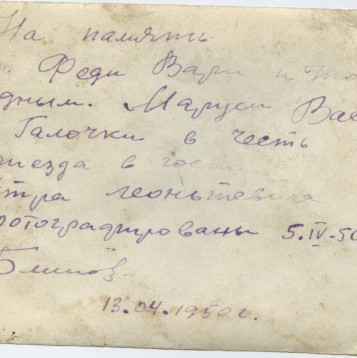 На память
Феди Вари и
дным. Маруси Вас
Галочки в честь
риезда в гос
етра леонтевича
фотографированы 5.IV-50
13.04.1950г.